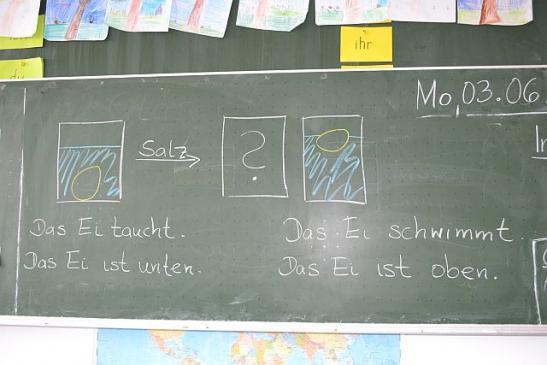 ihr
Mo, 03.06
Salz
?
Das Ei taucht.
Das Ei ist unten.
Das Ei schwimmt.
Das Ei ist oben.